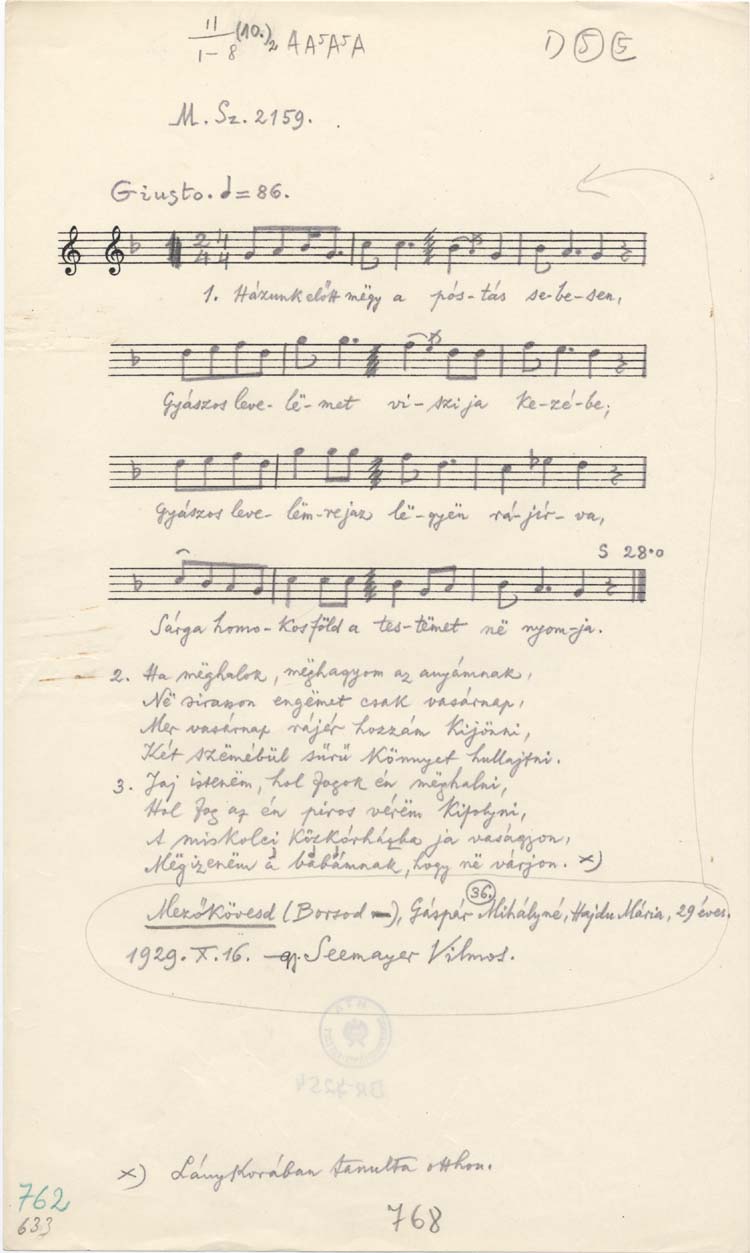 11
1-8 (10.)2 A A⁵ A⁵ A
D 5 5
M. Sz. 2159.
Giusto. = 86.
2 4
4 4
1. Házunk előtt mëgy a pós-tás se-be-sen,
Gyászos leve-lë-met vi-szi ja ke-zé-be;
Gyászos leve-lëm-re jaz lë-gyën rá-jír-va,
S 28.0
Sárga homo-kos föld a tes-tëmet në nyom-ja.
2. Ha mëghalok, mëghagyom az anyámnak,
Në sirasson engëmet csak vasárnap,
Mer vasárnap rájér hozzám kijönni,
Két szëmébül sürü könnyet hullajtni.
3. Jaj istenëm, hol fogok én mëghalni,
Hol fog az én piros vérëm kifolyni,
A miskolci közkórházba ja vaságyon,
Mëgizenëm a babámnak, hogy në várjon. x)
36.
Mezőkövesd (Borsod), Gáspár Mihályné, Hajdu Mária, 29 éves.
1929. X. 16. gy. Seemayer Vilmos.
BR 7254
x) Lánykorában tanulta otthon.
762
633
768